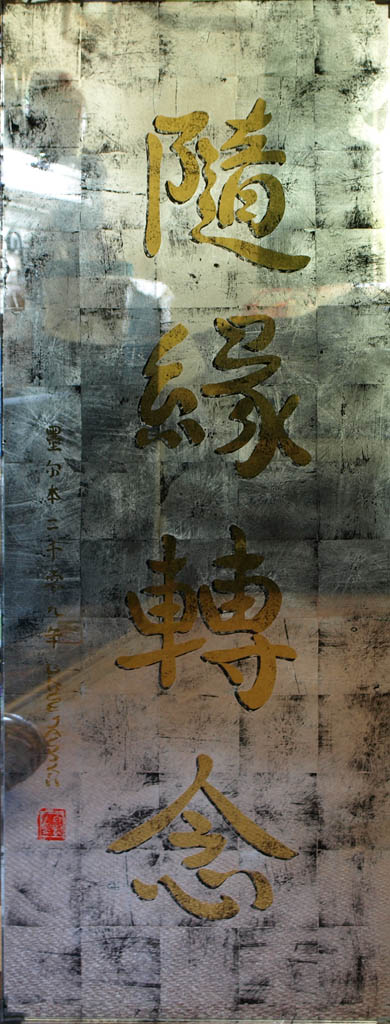 隨緣轉念
墨尔本二千零九年